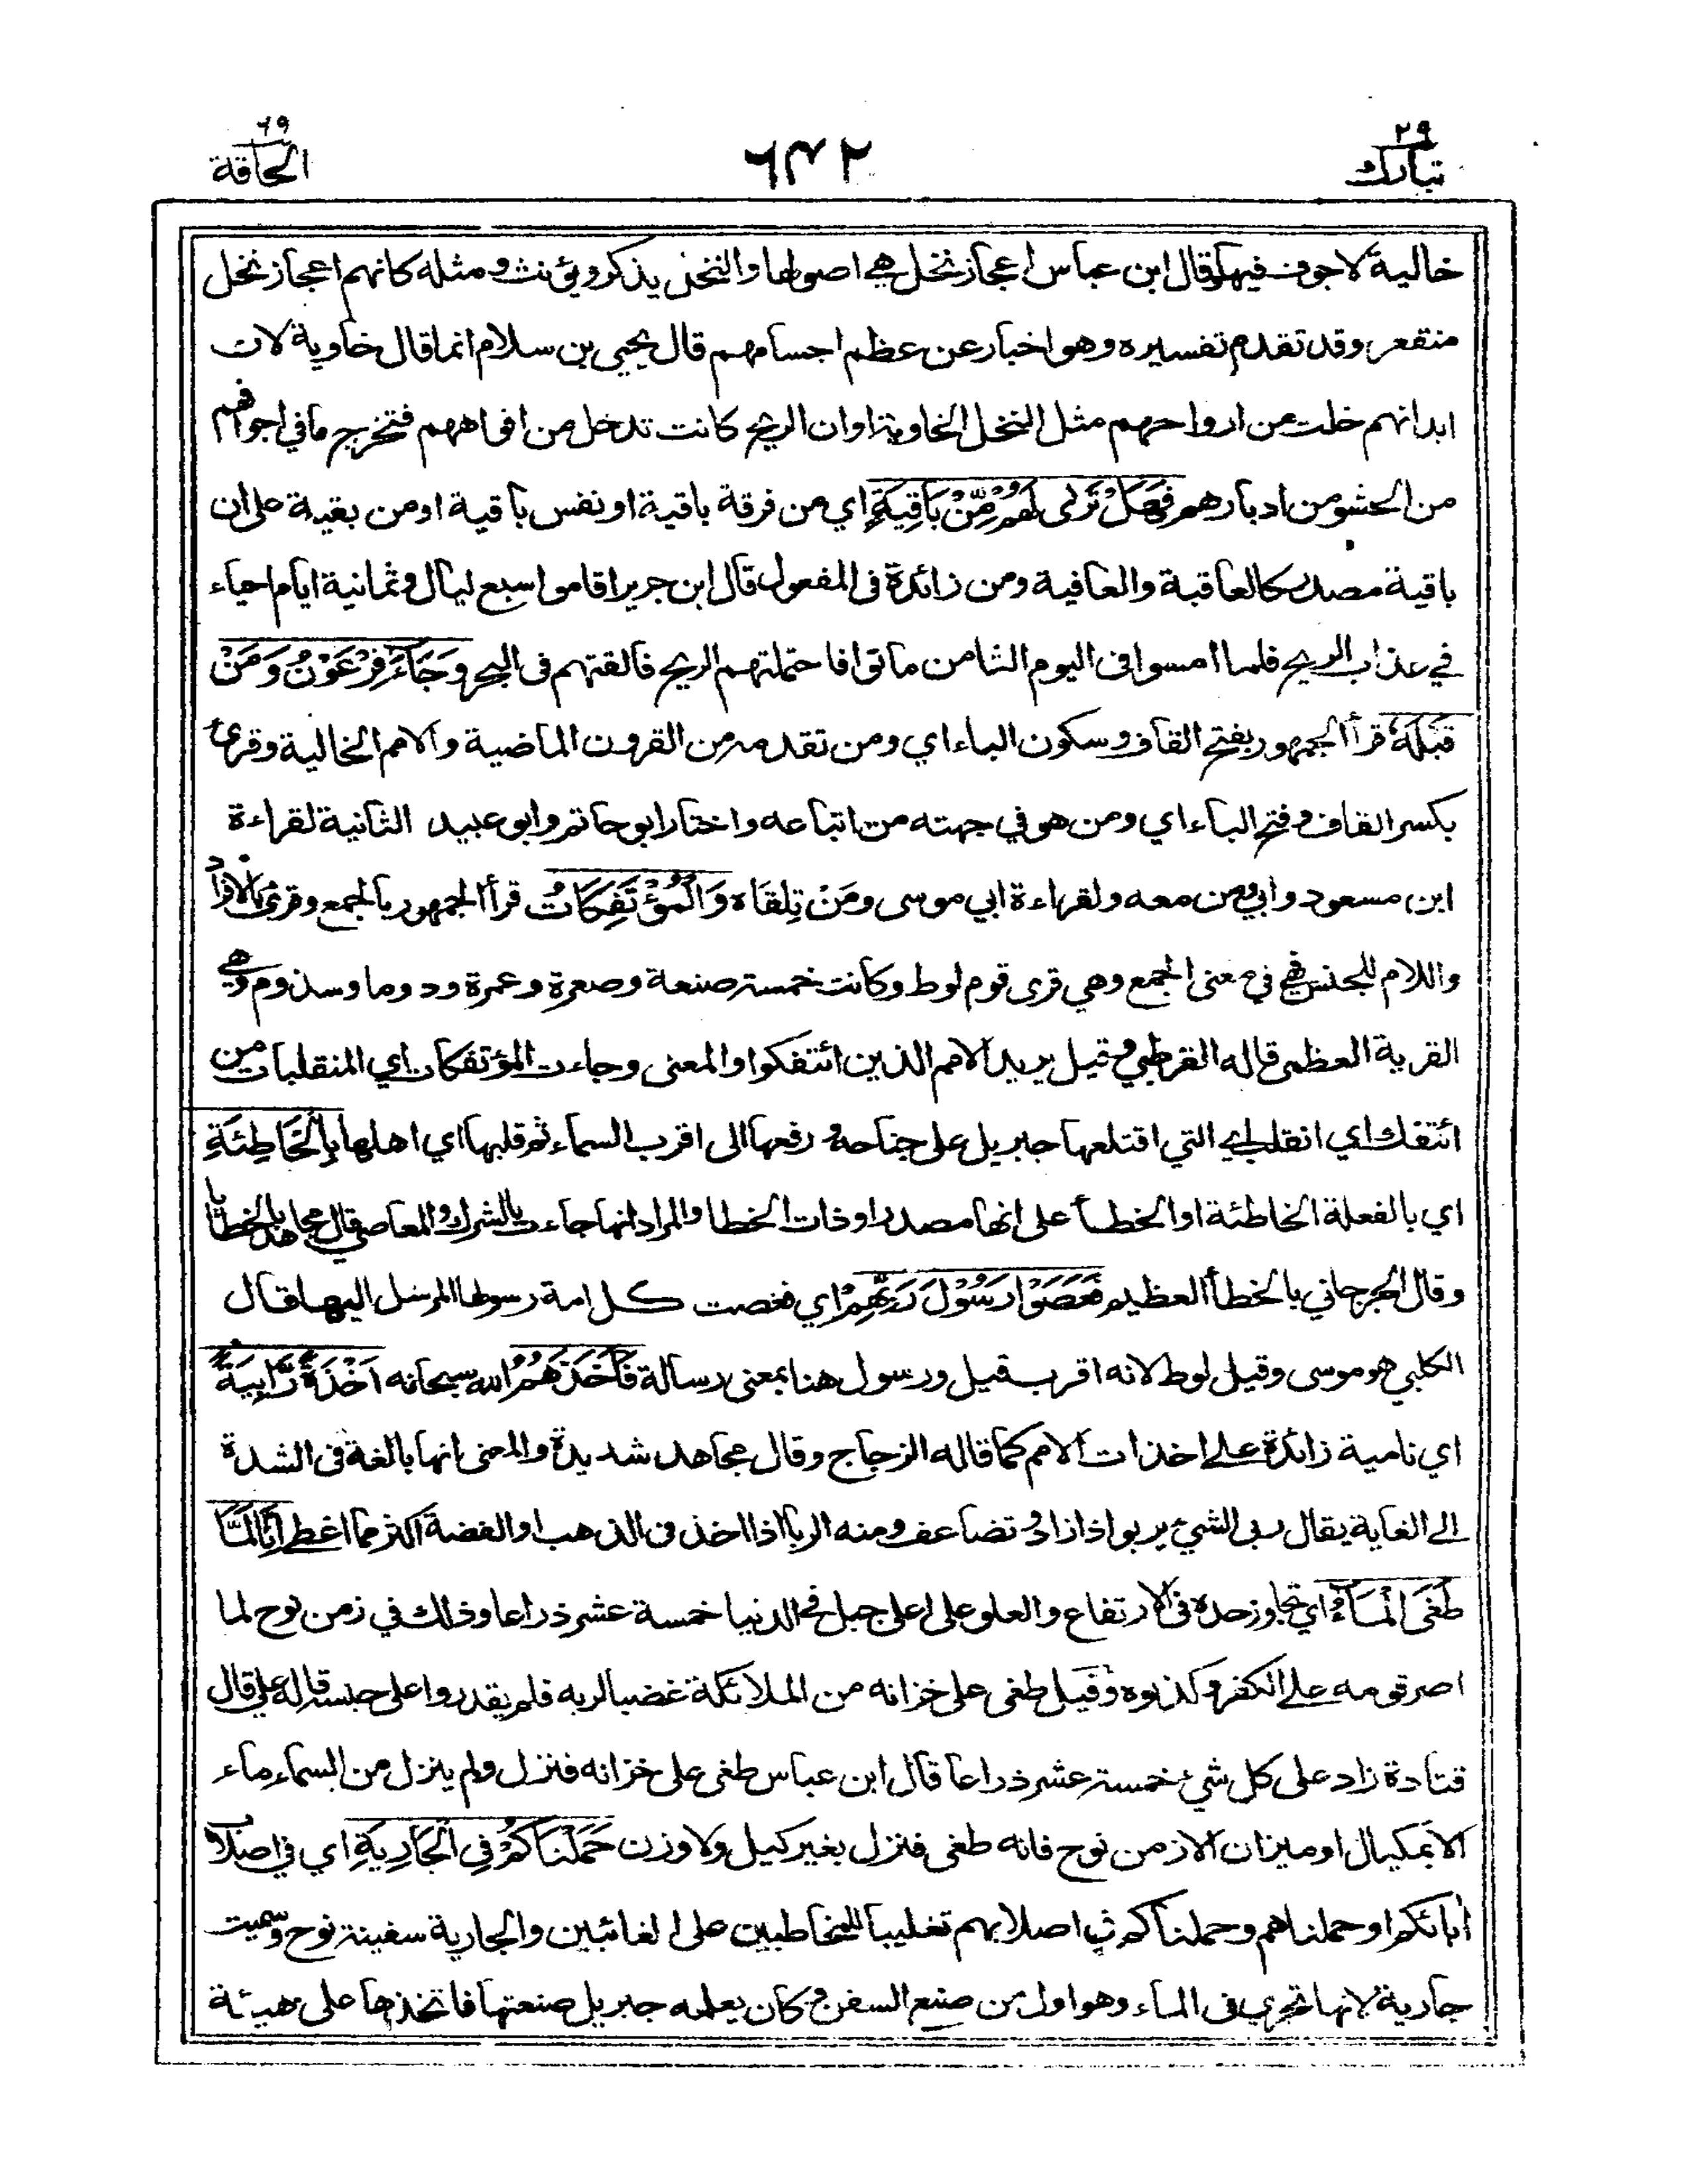 ٢٩
تبارك
٦٤٢
٦٩
الحاقة
خالية لا جوف فيها وقال ابن عباس اعجاز نخل هي اصولها والنخل يذكر ويؤنث ومثله كانهم اعجاز نخل
منقعر وقد تقدم تفسيره وهو اخبار عن عظم اجسامهم قال يحيى بن سلام انما قال خاوية لان
ابدانهم خلت من ارواحهم مثل النخل الخاوية او ان الريح كانت تدخل من افواههم فتخرج ما في اجوافهم
من الحشو من ادبارهم فَهَلْ تَرٰى لَهُمْ مِّنْ بَاقِيَةٍ اي من فرقة باقية او نفس باقية او من بقية على ان
باقية مصدر كالعاقبة والعافية ومن زائدة في المفعول قال ابن جرير اقاموا سبع ليال وثمانية ايام احياء
في عذاب الريح فلما امسوا في اليوم الثامن ماتوا فاحتملتهم الريح فالقتهم في البحر وَجَاءَ فِرْعَوْنُ وَمَنْ
قَبْلَهُ قرأ الجمهور بفتح القاف وسكون الباء اي ومن تقدمه من القرون الماضية والامم الخالية وقرئ
بكسر القاف وفتح الباء اي ومن هو في جهته من اتباعه واختار ابو حاتم وابو عبيد الثانية لقراءة
ابن مسعود وابي ومن معه ولقراءة ابي موسى ومَنْ تِلقَاه وَالْمُؤْتَفِكَاتُ قرأ الجمهور بالجمع وقرئ بالافراد
واللام للجنس فهي في معنى الجمع وهي قرى قوم لوط وكانت خمسة صنعة وصعرة وعمرة ودوما وسذوم وهي
القرية العظمى قاله القرطبي وقيل يريد الامم الذين ائتفكوا والمعنى وجاءت المؤتفكات اي المنقلبات من
ائتفك اي انقلب اي التي اقتلعها جبريل على جناحه ورفعها الى اقرب السماء ثم قلبها اي اهلها بِالْخَاطِئَةِ
اي بالفعلة الخاطئة او الخطأ على انها مصدر او ذات الخطا والمراد انها جاءت بالشرك والمعاصي قال مجاهد بالخطايا
وقال الجرجاني بالخطأ العظيم فَعَصَوْا رَسُوْلَ رَبِّهِمْ اي فعصت كل امة رسولها المرسل اليها قال
الكلبي هو موسى وقيل لوط لانه اقرب قيل ورسول هنا بمعنى رسالة فَاَخَذَهُمْ الله سبحانه اَخْذَةً رَّابِيَةً
اي نامية زائدة على اخذات الامم كما قاله الزجاج وقال مجاهد شديدة والمعنى انها بالغة في الشدة
الى الغاية يقال ربى الشيء يربو اذا زاد وتضاعف ومنه الربا اذا اخذ في الذهب او الفضة اكثر مما اعطى اِنَّا لَمَّا
طَغَى الْمَاءُ اي تجاوز حده في الارتفاع والعلو على اعلى جبل في الدنيا خمسة عشر ذراعا وذلك في زمن نوح لما
اصر قومه على الكفر وكذبوه وقيل طغى على خزانه من الملائكة غضبا لربه فلم يقدروا على حبسه قاله علي قال
قتادة زاد على كل شيء خمسة عشر ذراعا قال ابن عباس طغى على خزانه فنزل ولم ينزل من السماء ماء
الا بمكيال او ميزان الا زمن نوح فانه طغى فنزل بغير كيل ولا وزن حَمَلْنَاكُمْ فِي الْجَارِيَةِ اي في اصلاب
ابائكم او حملناهم وحملناكم في اصلابهم تغليبا للمخاطبين على الغائبين والجارية سفينة نوح وسميت
جارية لانها تجري في الماء وهو اول من صنع السفن وكان يعلمه جبريل صنعتها فاتخذها على هيئة